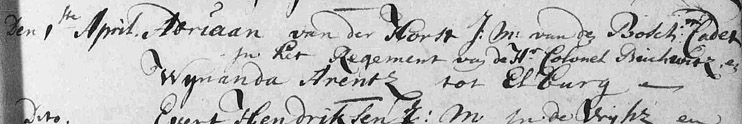 Den 1ste April. Adriaan van der Horst J: M: van den Bosch: Cadet
in het Regement van de Hr Colonel Buchwitz, en
Wynanda Arentz tot Elburg
Dito. Evert Hendriksen J: M: in de Vrijhz en